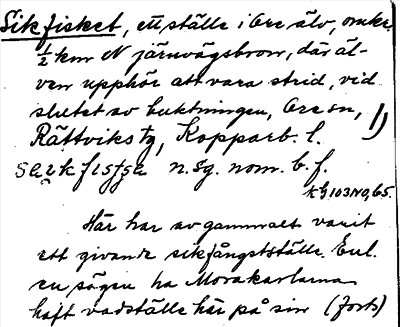 Sikfisket, ett ställe i Ore älv, omkr.
½ km N järnvägsbron, där äl-
ven upphör att vara strid, vid
slutet av buktningen, Ore sn, 1)
Rättviks tg, Kopparb. l.
n. sg. nom. b. f.
kg 103 NO, 65.
Här har av gammalt varit
ett givande sikfångstställe. Enl.
en sägen ha Morakarlarna
haft vadställe här på sin (forts)